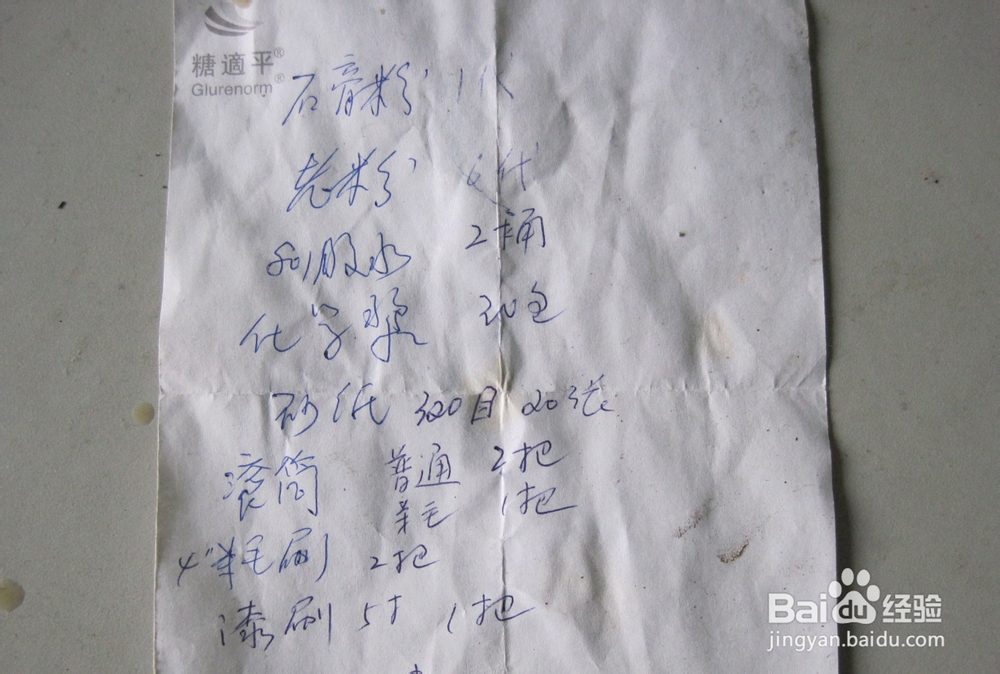 糖適平®
Glurenorm®
石膏粉 1代
老粉 6代
801胶水 2桶
化学浆 30包
砂纸 320目 20张
滚筒 普通 2把
羊毛 1把
4"羊毛刷 2把
漆刷 5寸 1把
Baidu经验
jingyan.baidu.com